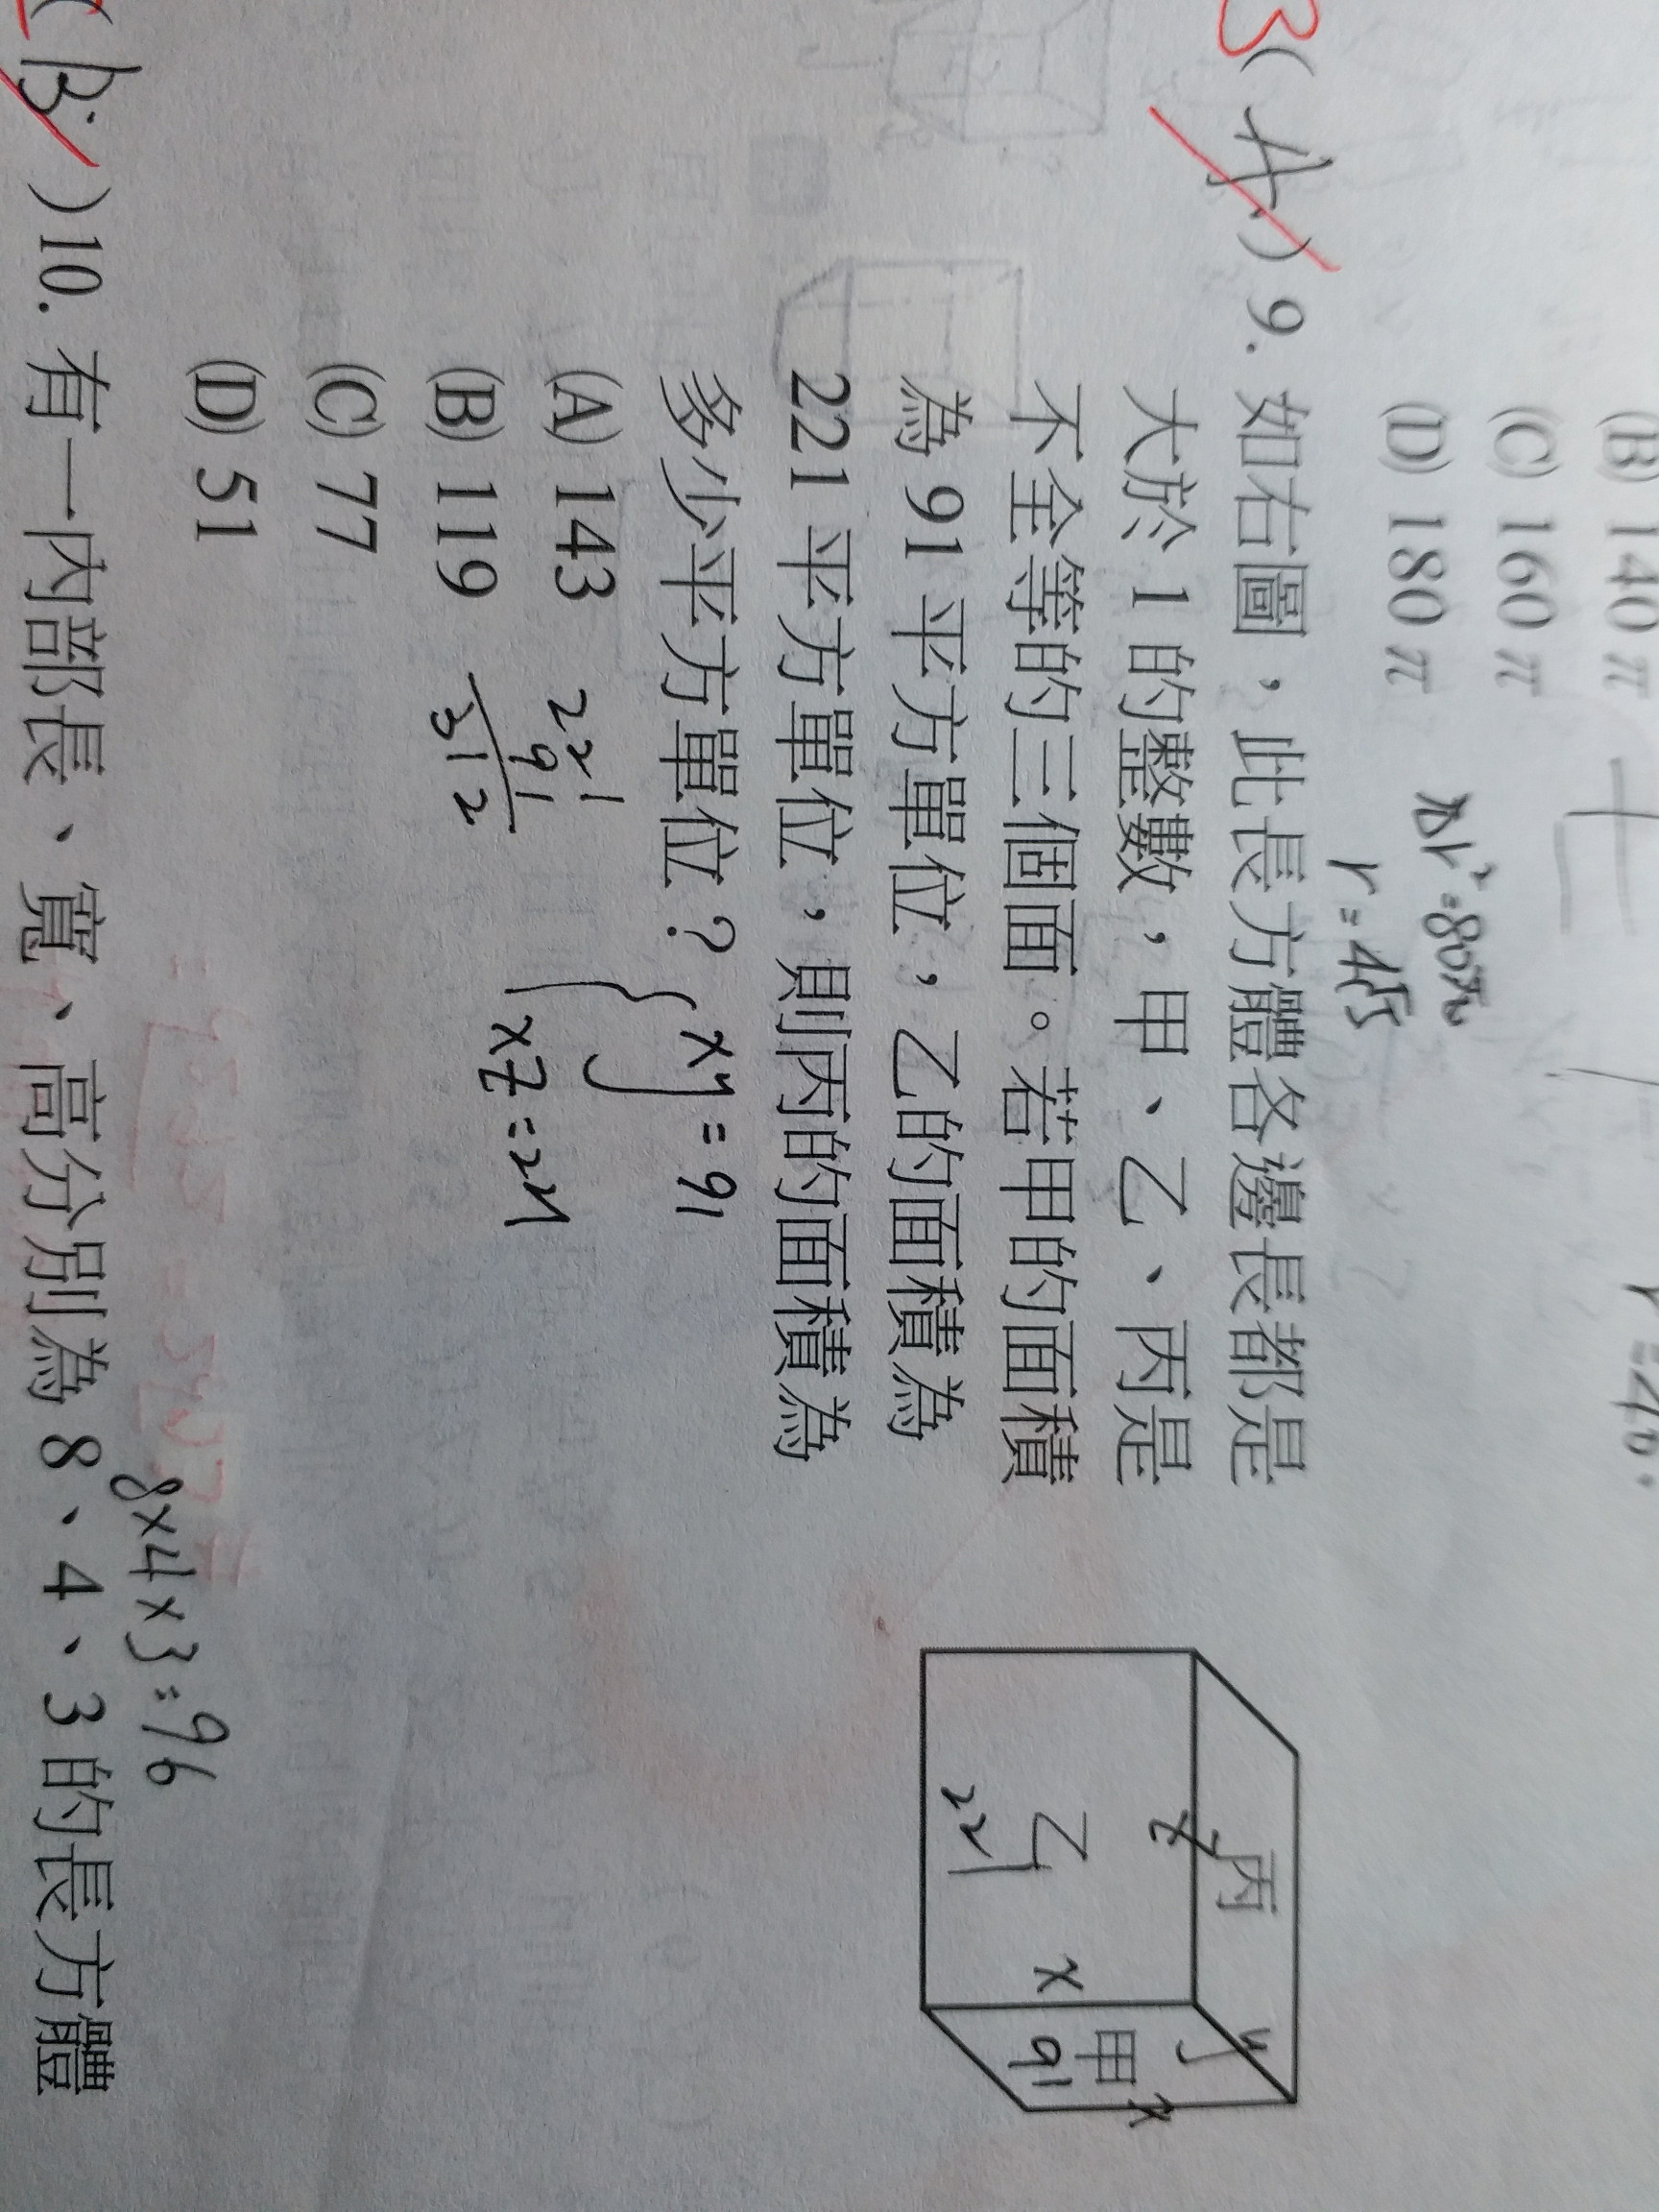 (B) 140 π
(C) 160 π
(D) 180 π
πr²=80π
r=4√5
B
(A) 9. 如右圖，此長方體各邊長都是
大於 1 的整數，甲、乙、丙是
不全等的三個面。若甲的面積
為 91 平方單位，乙的面積為
221 平方單位，則丙的面積為
多少平方單位？
(A) 143
(B) 119
(C) 77
(D) 51
221
91
312
xy=91
xz=221
丙
z
y
乙
x
甲
x
221
91
8×4×3=96
(B) 10. 有一內部長、寬、高分別為 8、4、3 的長方體